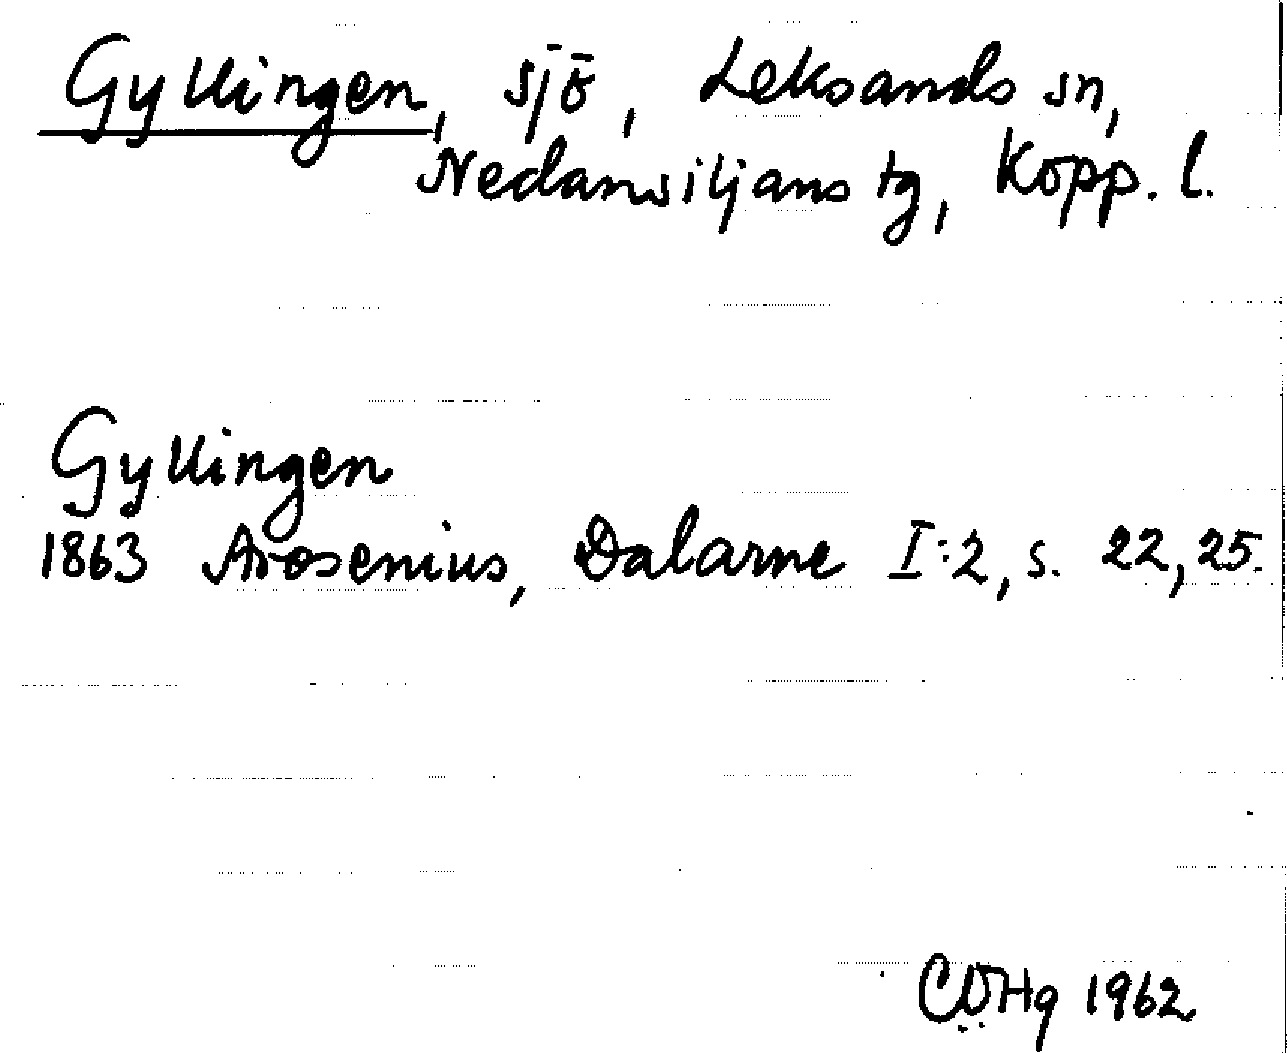 Gyllingen, sjö, Leksands sn,
Nedansiljans tg, Kopp. l.
Gyllingen
1863 Arosenius, Dalarne I:2, s. 22, 25.
CDHg 1962